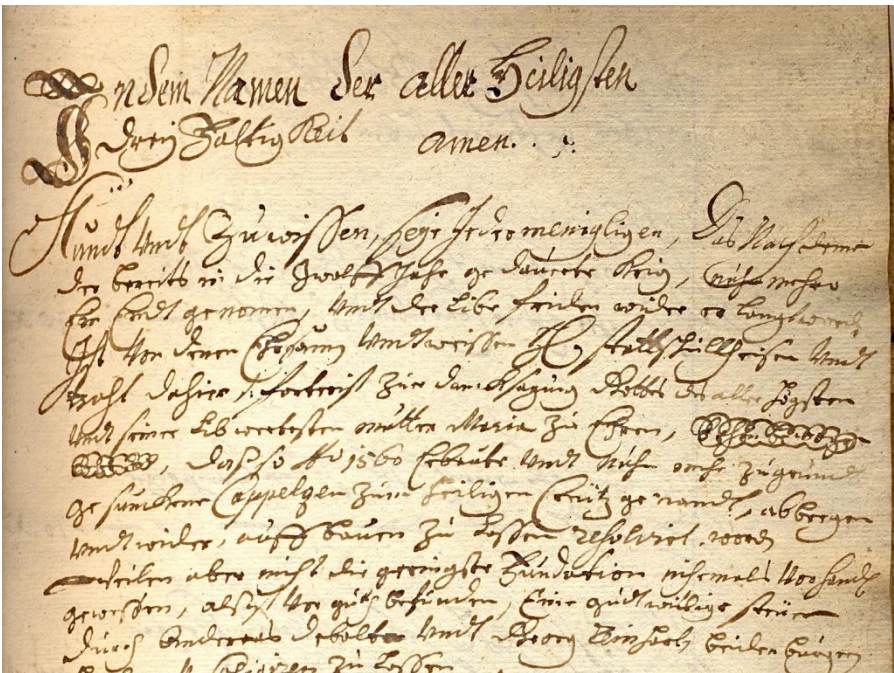 In dem Namen der aller Heiligsten
Dreÿ Faltig Keit amen.
Kundt Undt Zu wissen, seÿe Jedermenigligen, Das Nach deme
der bereits in die Zwolff Jahr gedauerte Krig, nuhn mehro
Ein Endt genomen, Undt der Libe friden wider er langt worden
Ist Von denen Undt weissen H. stattschullheisen Undt
raht dahir, forterist Zur dancksagung Gottes des aller hogsten
Undt seiner Lib werthesten mutter Maria Zu Ehren,
, daß so Ao 1560 Erbaute Undt nuhn mehr Zu grundt
gesunckene Cappelgen Zum heiligen Creutz genandt, abbregen
Undt wider, auff bauen Zu lossen resolvirt worden
weilen aber nicht die geringste Fundation nihemals Vorhanden
gewessen, alß ist Vor guth befunden, Eine gudtwillige steuer
durch Andereas Debolt Undt Georg beiden burger
Zu lossen